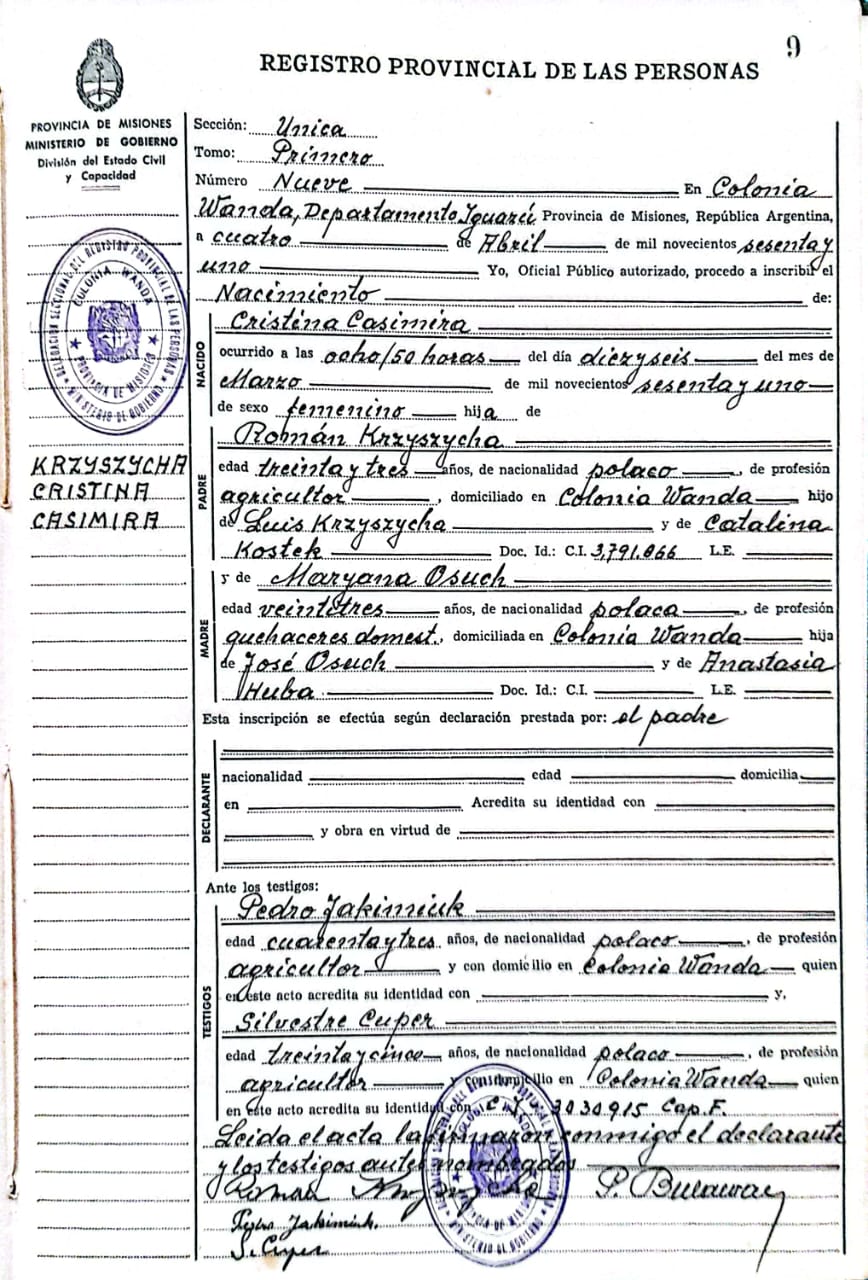 9
REGISTRO PROVINCIAL DE LAS PERSONAS
PROVINCIA DE MISIONES
MINISTERIO DE GOBIERNO
División del Estado Civil
y Capacidad
Sección: Unica
Tomo: Primero
Número Nueve En Colonia
Wanda, Departamento Iguazú Provincia de Misiones, República Argentina,
a cuatro de Abril de mil novecientos sesenta y
uno Yo, Oficial Público autorizado, procedo a inscribir el
Nacimiento de:
DELEGACION SECCIONAL DEL REGISTRO PROVINCIAL DE LAS PERSONAS
COLONIA WANDA
PROVINCIA DE MISIONES
MINISTERIO DE GOBIERNO
KRZYSZYCHA
CRISTINA
CASIMIRA
NACIDO
Cristina Casimira
ocurrido a las ocho/50 horas del día diez y seis del mes de
Marzo de mil novecientos sesenta y uno
de sexo femenino hija de
PADRE
Román Krzyszycha
edad treinta y tres años, de nacionalidad polaco, de profesión
agricultor, domiciliado en Colonia Wanda hijo
de Luis Krzyszycha y de Catalina
Kostek Doc. Id.: C.I. 3,791,066 L.E.
MADRE
y de Maryana Osuch
edad veintitres años, de nacionalidad polaca, de profesión
quehaceres domest., domiciliada en Colonia Wanda hija
de José Osuch y de Anastasia
Huba Doc. Id.: C.I. L.E.
Esta inscripción se efectúa según declaración prestada por: el padre
DECLARANTE
nacionalidad edad domicilia
en Acredita su identidad con
y obra en virtud de
Ante los testigos:
TESTIGOS
Pedro Jakimiuk
edad cuarenta y tres años, de nacionalidad polaco, de profesión
agricultor y con domicilio en Colonia Wanda quien
en este acto acredita su identidad con y,
Silvestre Cuper
edad treinta y cinco años, de nacionalidad polaco, de profesión
agricultor y con domicilio en Colonia Wanda quien
en este acto acredita su identidad con C.I. 3030915 Cap.F.
Leida el acta la firmaron conmigo el declarante
y los testigos antes nombrados
Roman
Pedro Jakimiuk.
S. Cuper